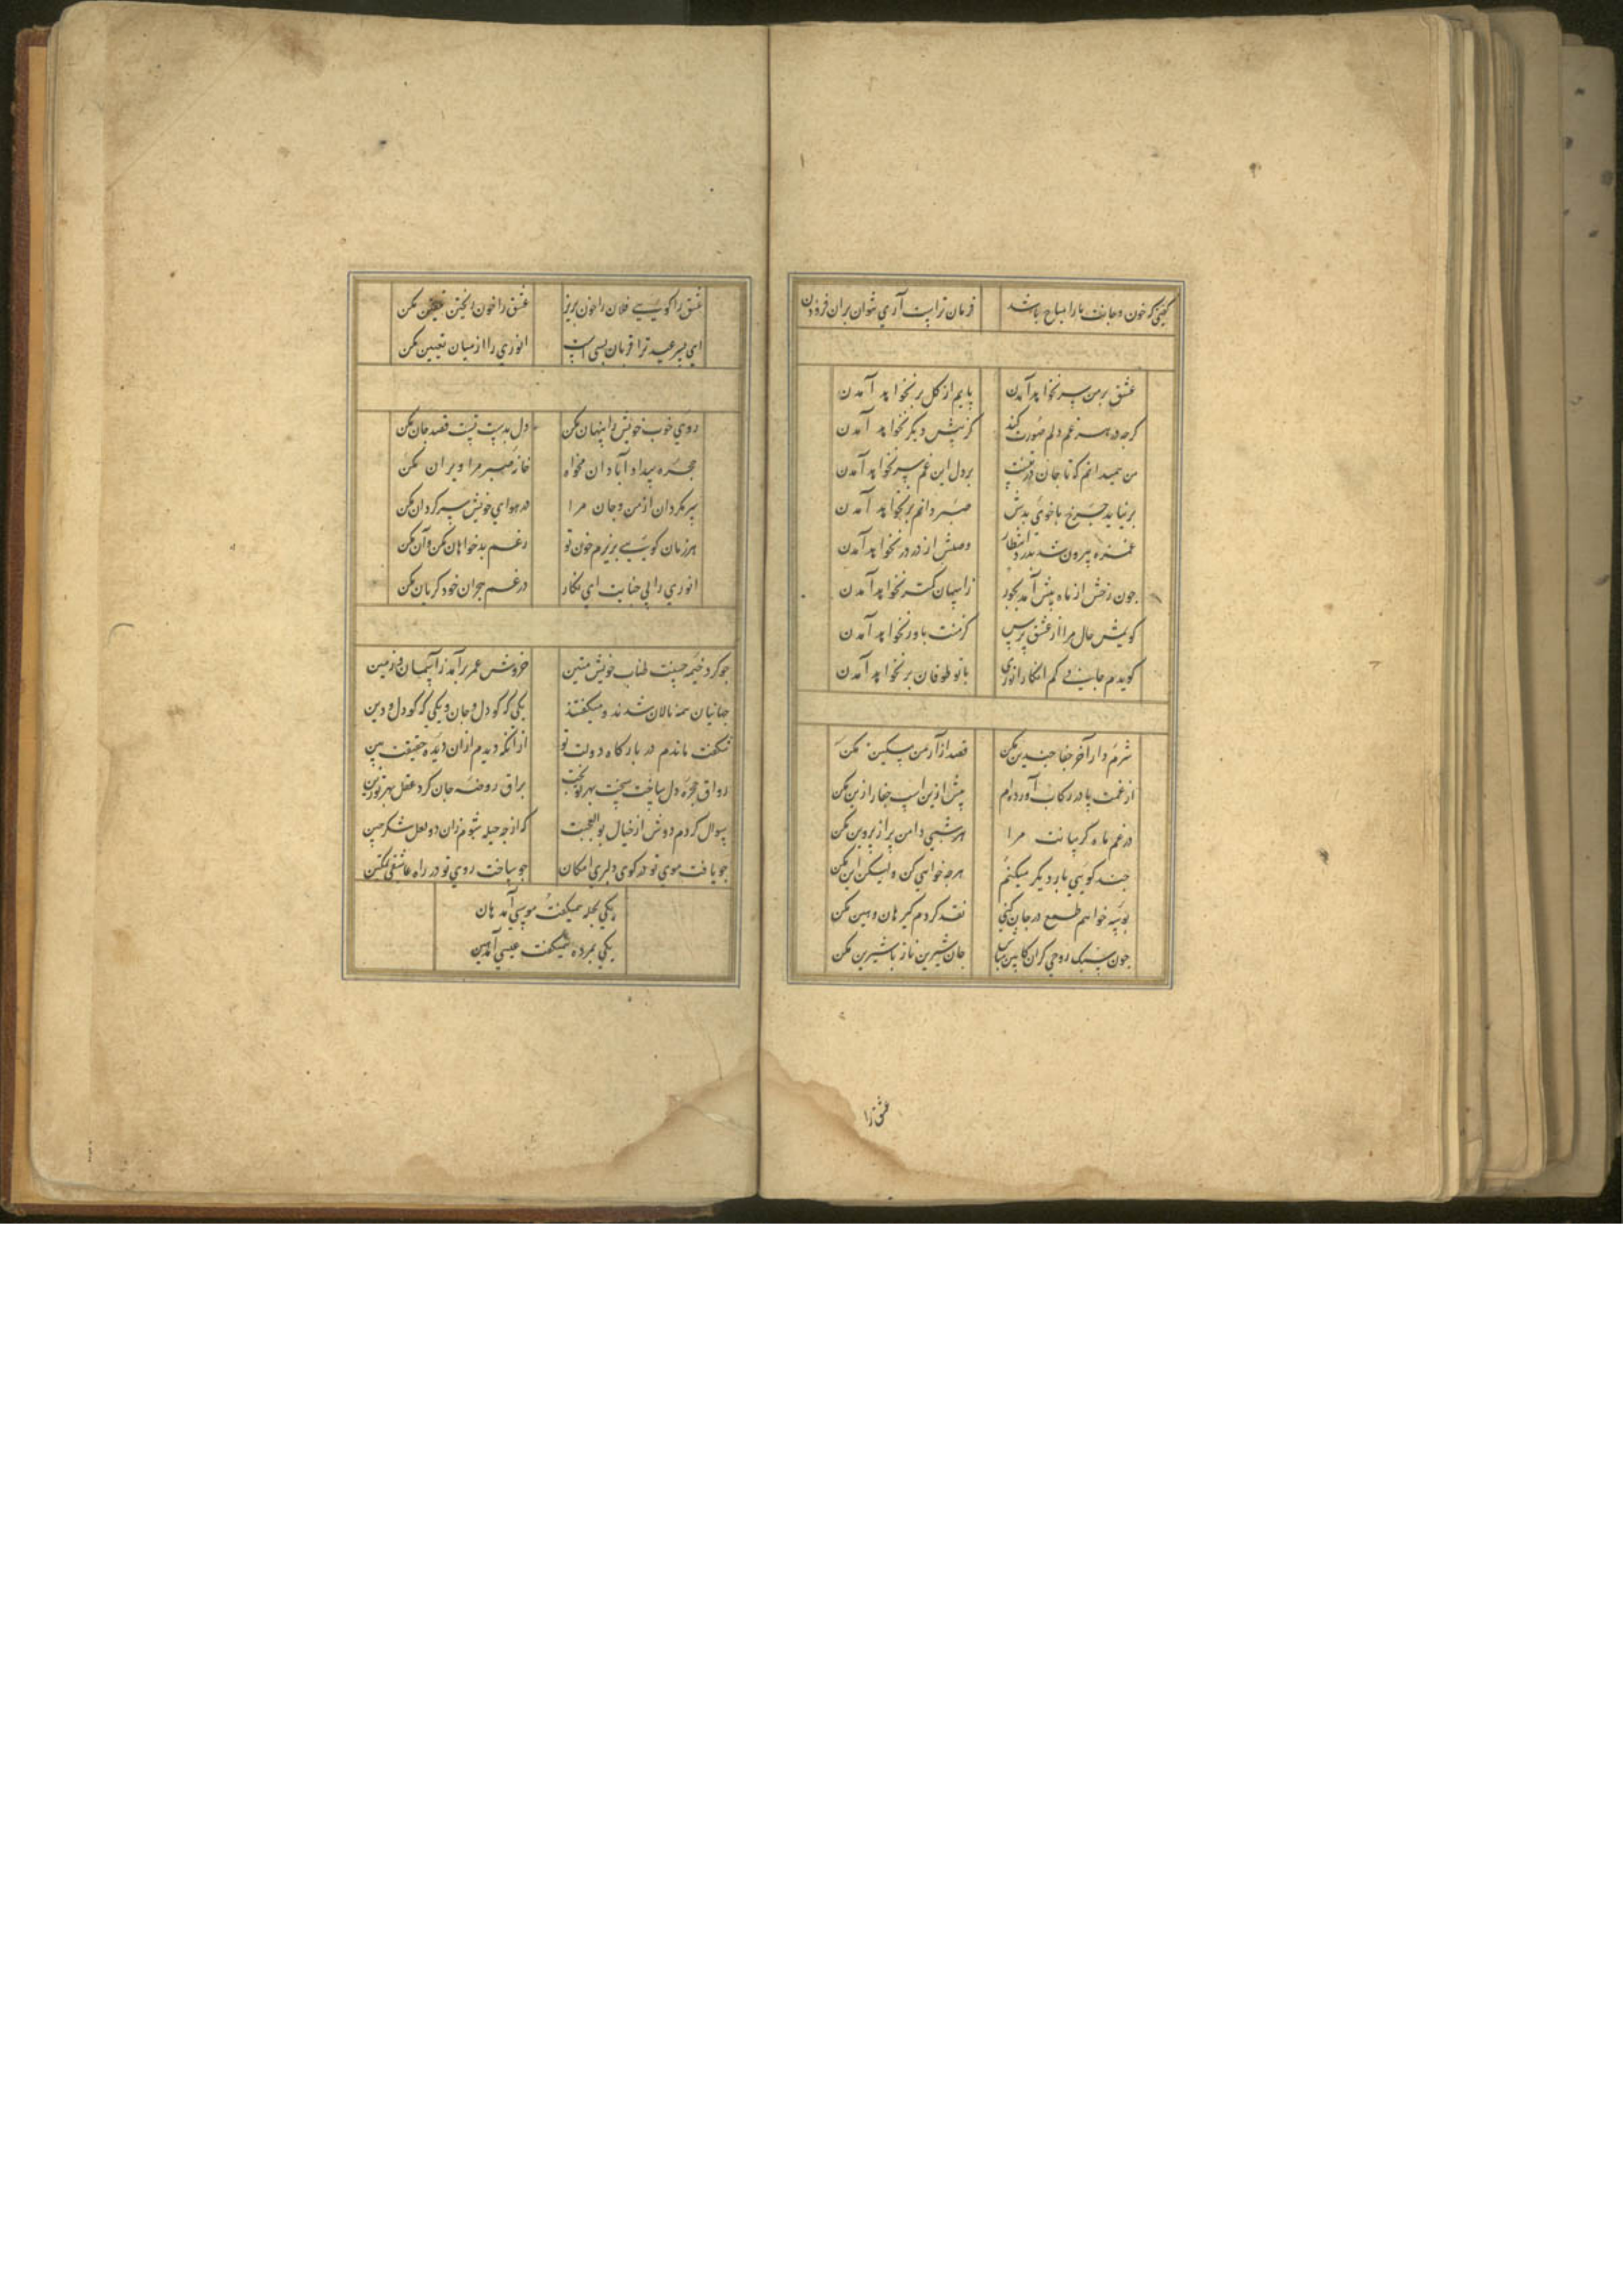 گفتی که خون و جانت ما را مباح باشد فرمان تراست آری نتوان بران فزودن
عشق بر من سر نخواهد آمدن پایم از کل بر نخواهد آمدن
کرچه در هر غم دلم صورت کند کزپیش دیکر نخواهد آمدن
من همیدانم که تا جان در تنست بر دل این غم سر نخواهد آمدن
بر نیاید چرخ با خوی بدش صبر دانم بر نخواهد آمدن
عمر بیرون شد بدرد انتظار وصلش از در در نخواهد آمدن
چون رخش از ماه پیش آمد بجور زاسمان کمتر نخواهد آمدن
کویمش حال من از عشقت بپرس کزمنت باور نخواهد آمدن
کویدم جانی کم انکار انوری با تو طوفان بر نخواهد آمدن
شرم دار آخر جفا چندین مکن قصد آزار من مسکین مکن
از غمت پا در رکاب آورده‌ام پیش ازین اسب جفا را زین مکن
در غم ماه کریبانت مرا هر شبی دامن پر از پروین مکن
چند کویی یار دیکر میکنم هرچه خواهی کن ولیکن این مکن
بوسه خواهم طمع در جان کنی نقد کردم کیر هان و هین مکن
چون سبک روحی کران کابین مباش جان شیرین ناز با شیرین مکن
عشق را
عشق را کویی فلان را خون بریز عشق را خون ریختن تلقین مکن
ای بسر عید ترا قربان بسی است انوری را از میان تعیین مکن
روی خوب خویش را پنهان مکن دل بدست تست قصد جان مکن
حجره بیداد آبادان مخواه خانه صبر مرا ویران مکن
سر مکردان از من و جان مرا در هوای خویش سرکردان مکن
هر زمان کویی بریزم خون تو رغم بدخواهان مکن و آن مکن
انوری را بی جنایت ای نکار در غم هجران خود کریان مکن
چو کرد خیمه حسنت طناب خویش متین خروش عمر برآمد ز آسمان و زمین
جهانیان همه نالان شدند و میکفتند یکی که کو دل و جان و یکی که کو دل و دین
شکفت ماندم در بارکاه دولت تو از آنکه دیدم از آن دیده حقیقت بین
رواق حجره دل ساخت سخت بهر تو بخت براق روضه جان کرد عقل بهر تو زین
سوال کردم دوش از خیال بوالعجبت که از چه حیله شوم زان دو لعل شکر چین
چو یافت موی تو در کوی دلبری امکان چو ساخت روی تو در راه عاشقی تمکین
یکی بجله همیکفت موسی آمد هان
یکی بمرده همیکفت عیسی آمد هین